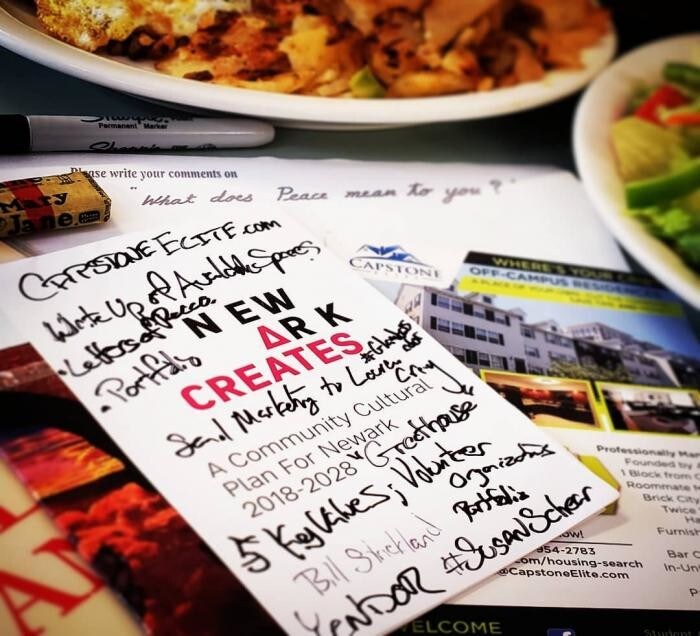 Sharpie
Permanent Marker
Sharpie
Please write your comments on
"What does Peace mean to you?"
Mary
Jane
CAPSTONEELITE.com
Write Up of Available Spaces
• Letters of Recco
• Portfolio
NEW
ARK
CREATES
Send Marketing to
A Community Cultural
Plan For Newark
2018-2028
Greathouse
5 Key Values; Volunteer
Organizations
Portfolio
Bill Strickland
VENDOR #SusanSchear
CAPSTONE
WHERE'S YOUR
OFF-CAMPUS RESIDENCES
Professionally
Founded by
1 Block from C
Roommate M
Brick City
Twice
Furnish
Bar C
In-Un
954-2783
.com/housing-search
@CapstoneElite.com
WELCOME